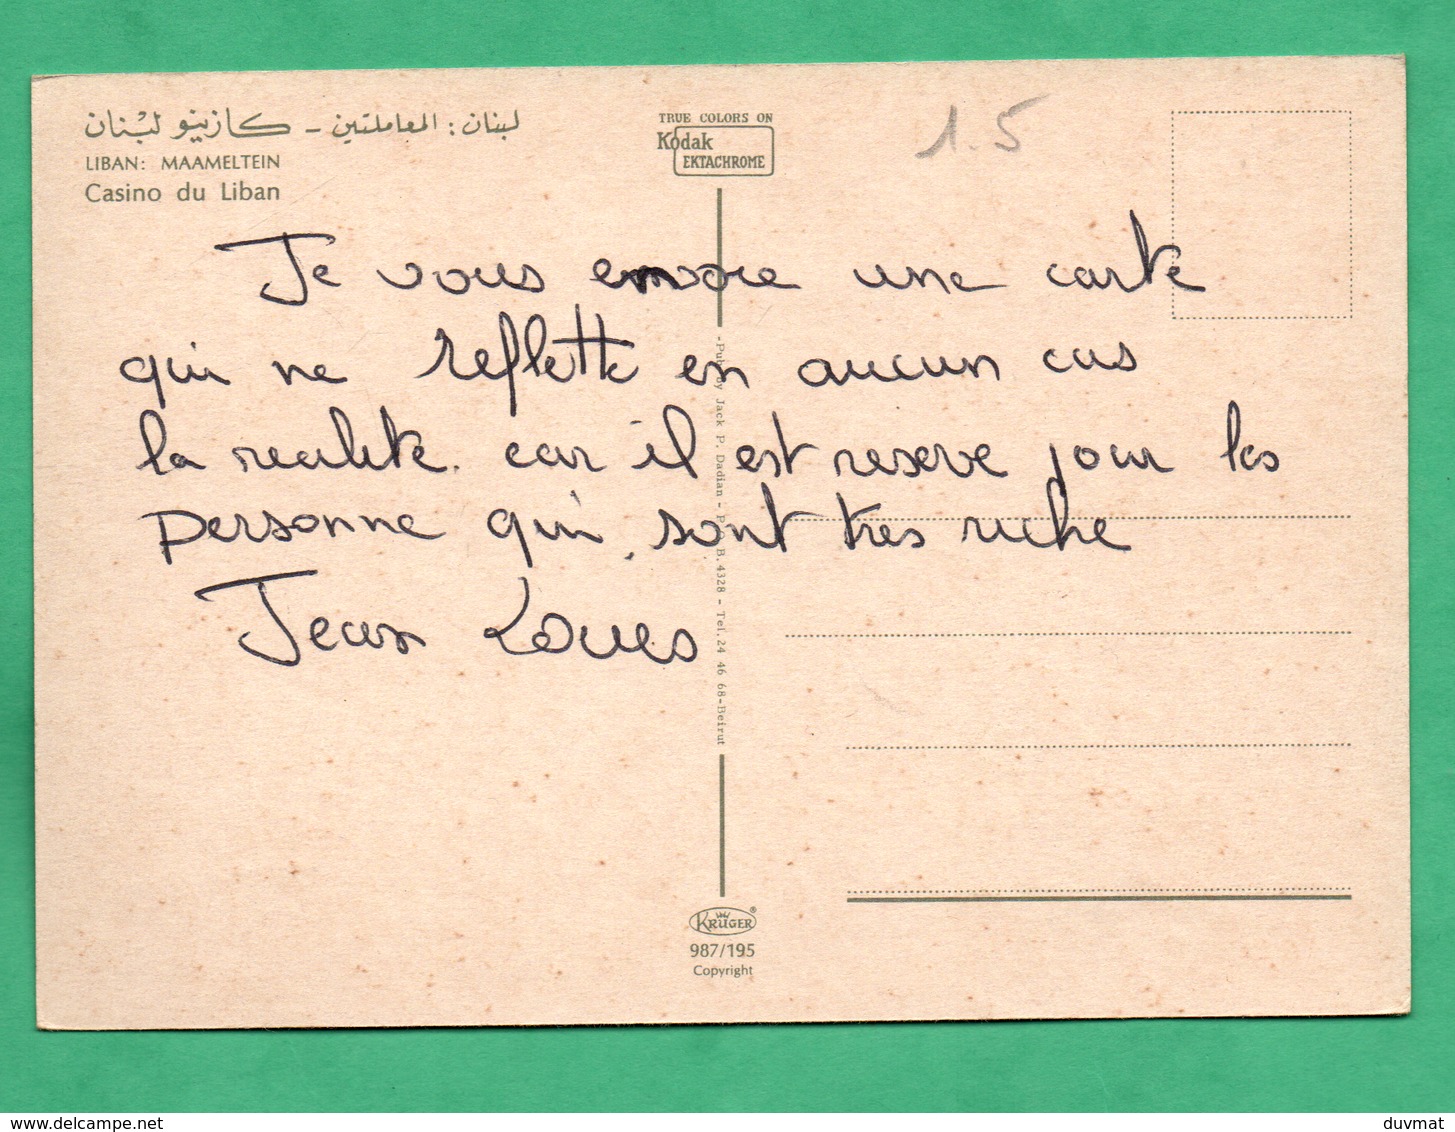 لبنان : المعاملتين - كازينو لبنان
LIBAN: MAAMELTEIN
Casino du Liban
TRUE COLORS ON
Kodak
EKTACHROME
1.5
Je vous envoie une carte
qui ne reflette en aucun cas
la realite. car il est reserve pour les
personne qui sont tres riche
Jean Loues
Pub. by Jack P. Dadian - P. O. B. 4328 - Tel. 24 46 68 - Beirut
KRÜGER®
987/195
Copyright
www.delcampe.net
duvmat